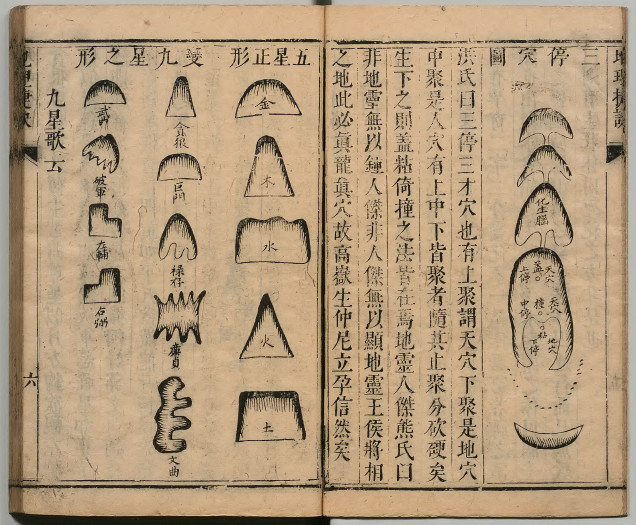 三停穴圖
化生腦
天穴
蓋
上停
人穴
撞
中停
粘
地穴
下停
洪氏曰三停三才穴也有上聚謂天穴下聚是地穴
中聚是人穴有上中下皆聚者隨其止聚分砍矣
生下之則蓋粘倚撞之法皆在焉地靈人傑熊氏曰
非地靈無以鍾人傑非人傑無以顯地靈王侯將相
之地此必眞龍眞穴故高嶽生仲尼立孕信然矣
五星正形
金
木
水
火
土
變九星之形
貪狼
巨門
祿存
廉貞
文曲
武曲
破軍
左輔
右弼
九星歌云
六